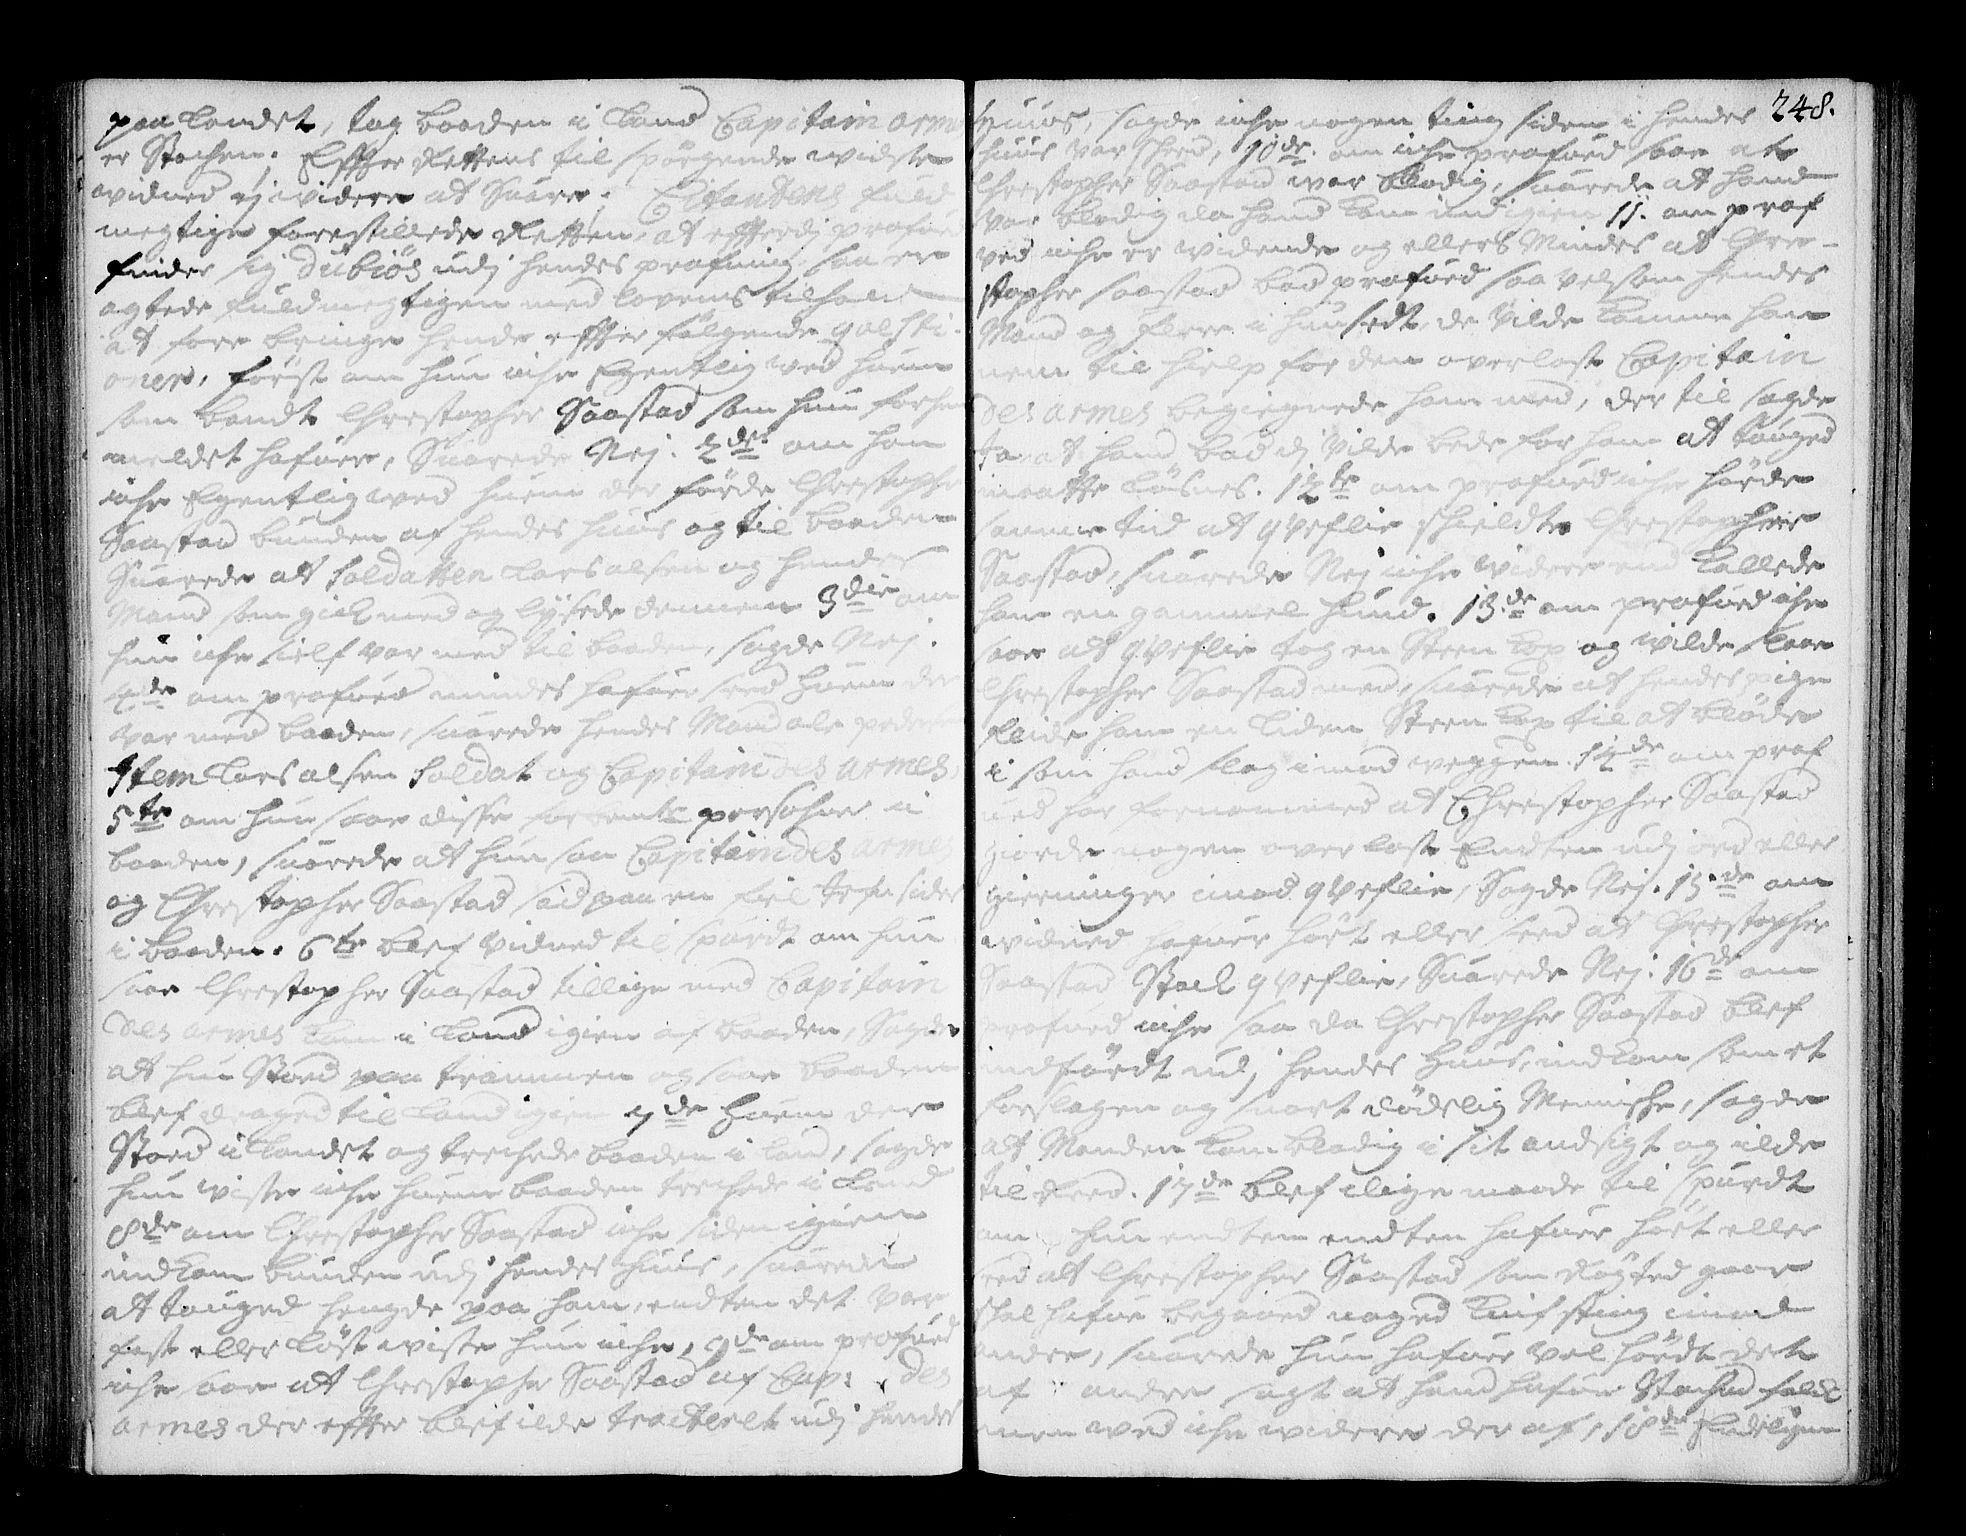 paa Landet, tog baaden i Land Capitain arme
er Stochen; Effter Rettens til spörgende widste
widned ej widere at Svare; Citantens fuld
megtige forestillede Retten, at effterdj profued
finder sig dubiös udj hendes profning saa er
agtede fuldmegtigen med lovens tilhold
at fore bringe hende effter følgende qvæsti-
oner, först om hun iche Egentlig ved huem
som bandt Chrestopher Saastad som hun forhen
meldet hafuer, Svarede Nej. 2de om hun
iche Egentlig wed huem der förde Chrestopher
Saastad bunden af hendes huus og til baaden
Svarede at soldatten Lars alsen og hendes
Mand som gick med og lysede dennem 3die om
hun iche sielf var med til baaden, sagde Nej.
4de om profued mindes hafuer seed huem der
var med baaden, svarede hendes Mand ole peders
Item Lars alsen soldat og Capitain des armes,
5te om hun saae disse forbemte persohner i
baaden, svarede at hun saa Capitain des armes
og Chrestopher Saastad sad paa en fiel tofn sider
i baaden. 6te blef vidned til spurdt om hun
saae Chrestopher Saastad tillige med Capitain
des armes kom i Land igien af baaden, Sagde
at hun Stoed paa trammen og saae baaden
blef draged til Land igien 7de huem der
Stoed i Landet og trechede baaden i Land, sagde
hun viste iche huem baaden trechede i Land
8de om Chrestopher Saastad iche siden igien
indkom bunden udj hendes huus, svarede
at touged hengde paa ham, endten det var
fast eller löst viste hun iche, 9de om profued
iche saae at Chrestopher Saastad af Cap: des
armes der effter blef ilde tracteret udj hendes

248.
huuus, sagde iche nogen ting siden i hendes
huus var skeed, 10de. om iche profued saae at
Chrestopher Saastad war blodig, svarede at hand
var blodig da hand kom ind igien 11. om prof
ved iche er widende og ellers Mindes at Chre-
stopher Saastad bad profued saa vel som hendes
Mand og flere i huusedt, de vilde komme ham
nem til hielp for den overlast Capitain
des armes begiegnede ham med, der til sagde
Ja at hand bad dj vilde bede for ham at touged
maatte lösnes. 12te om profued iche hörde
samme tid at qveflie skieldte Chrestopher
Saastad, svarede Nej iche widere end kallede
ham en gammel hund. 13de om profued iche
saae at qveflie tog en Steen kop og wilde slaae
Chrestopher Saastad med, svarede at hendes pige
fleide ham en liden Steen kop til at blöde
i som hand slog i mod veggen. 14de om prof
ued har fornommed at Chrestopher Saastad
giorde nogen overlast Endten udj ord eller
gierninger imod qveflie, Sagde Nej. 15de om
widned hafuer hört eller seed at Chrestopher
Saastad Stack qveflie, Svarede Nej. 16de om
profued iche saa da Chrestopher Saastad blef
indfördt udj hendes huus, indkom som et
forslagen og snart dödelig Menniske, sagde
at Manden kom blodig i sit andsigt og ilde
til Reed. 17de blef i lige maade til spurdt
om hun endten endten hafuer hört eller
seed at Chrestopher Saastad som Rögted gaar
skal hafue begaaed noged knif sting imod
andre, svarede hun hafuer vel hördt det
af andre sagt at hand hafue Stoched folch
men wed iche widere der af, 18de Endeligen